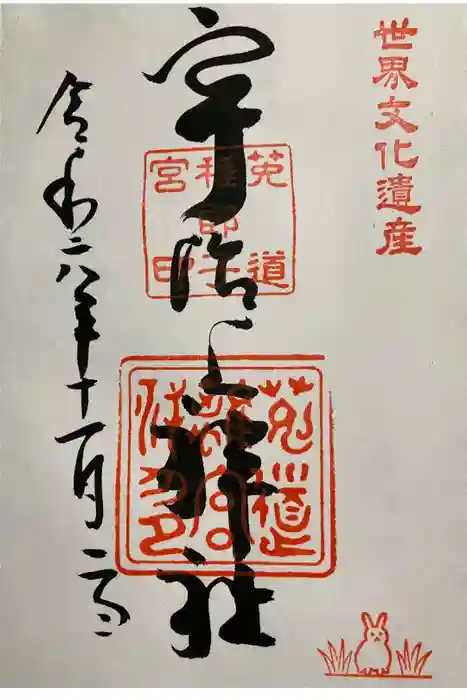 世界文化遺産
宇治上神社
菟道
稚郎子
宮印
令和六年十一月二日